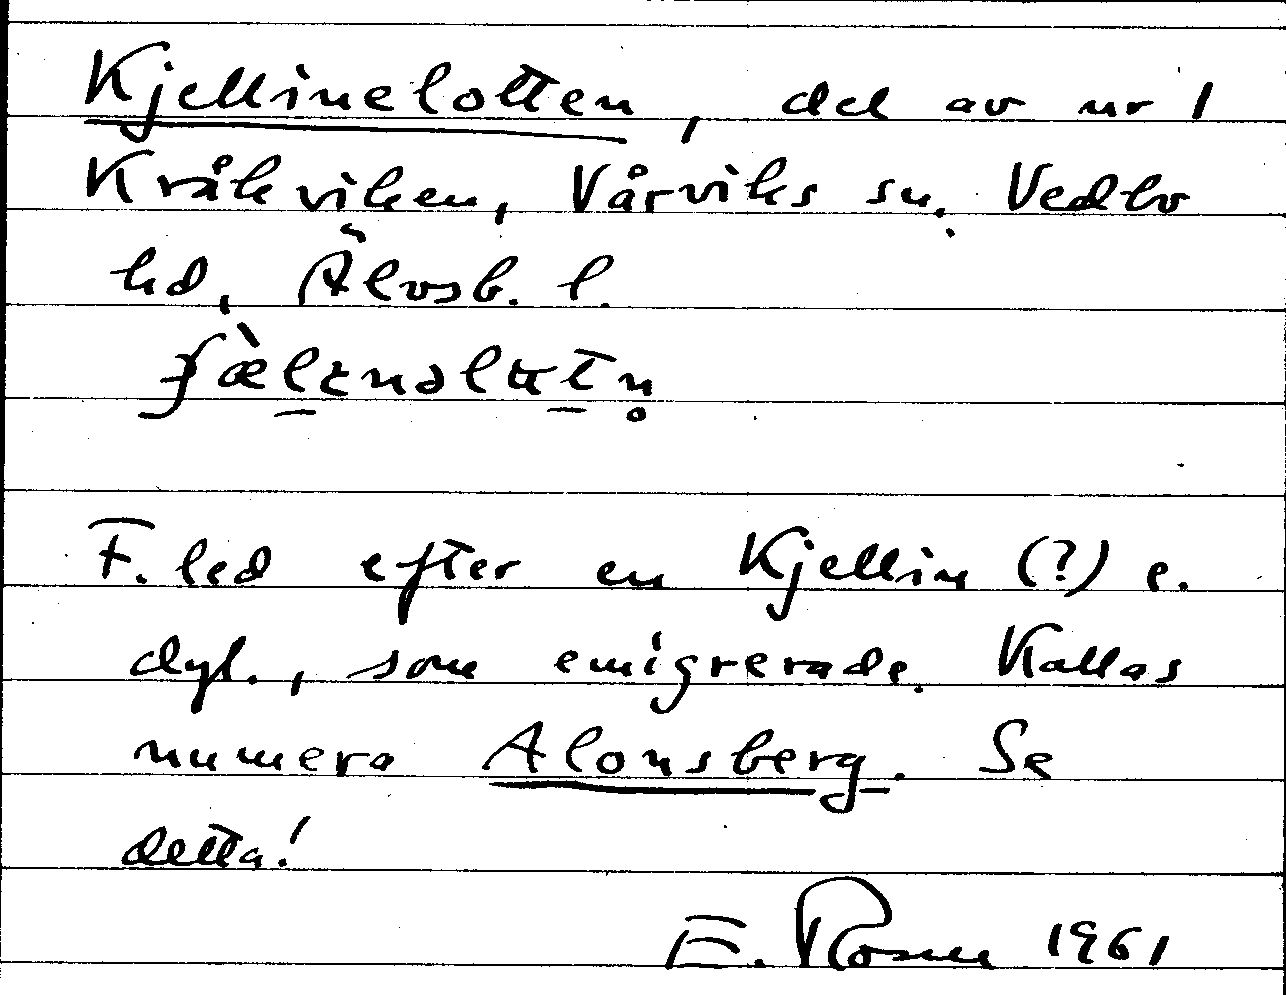 Kjellinelotten, del av nr 1
Kråkviken, Vårviks sn. Vedbo
hd, Älvsb. l.
F. led efter en Kjellin (?) e.
dyl., som emigrerade. Kallas
numera Alonsberg. Se
detta!
E. Rosell 1961